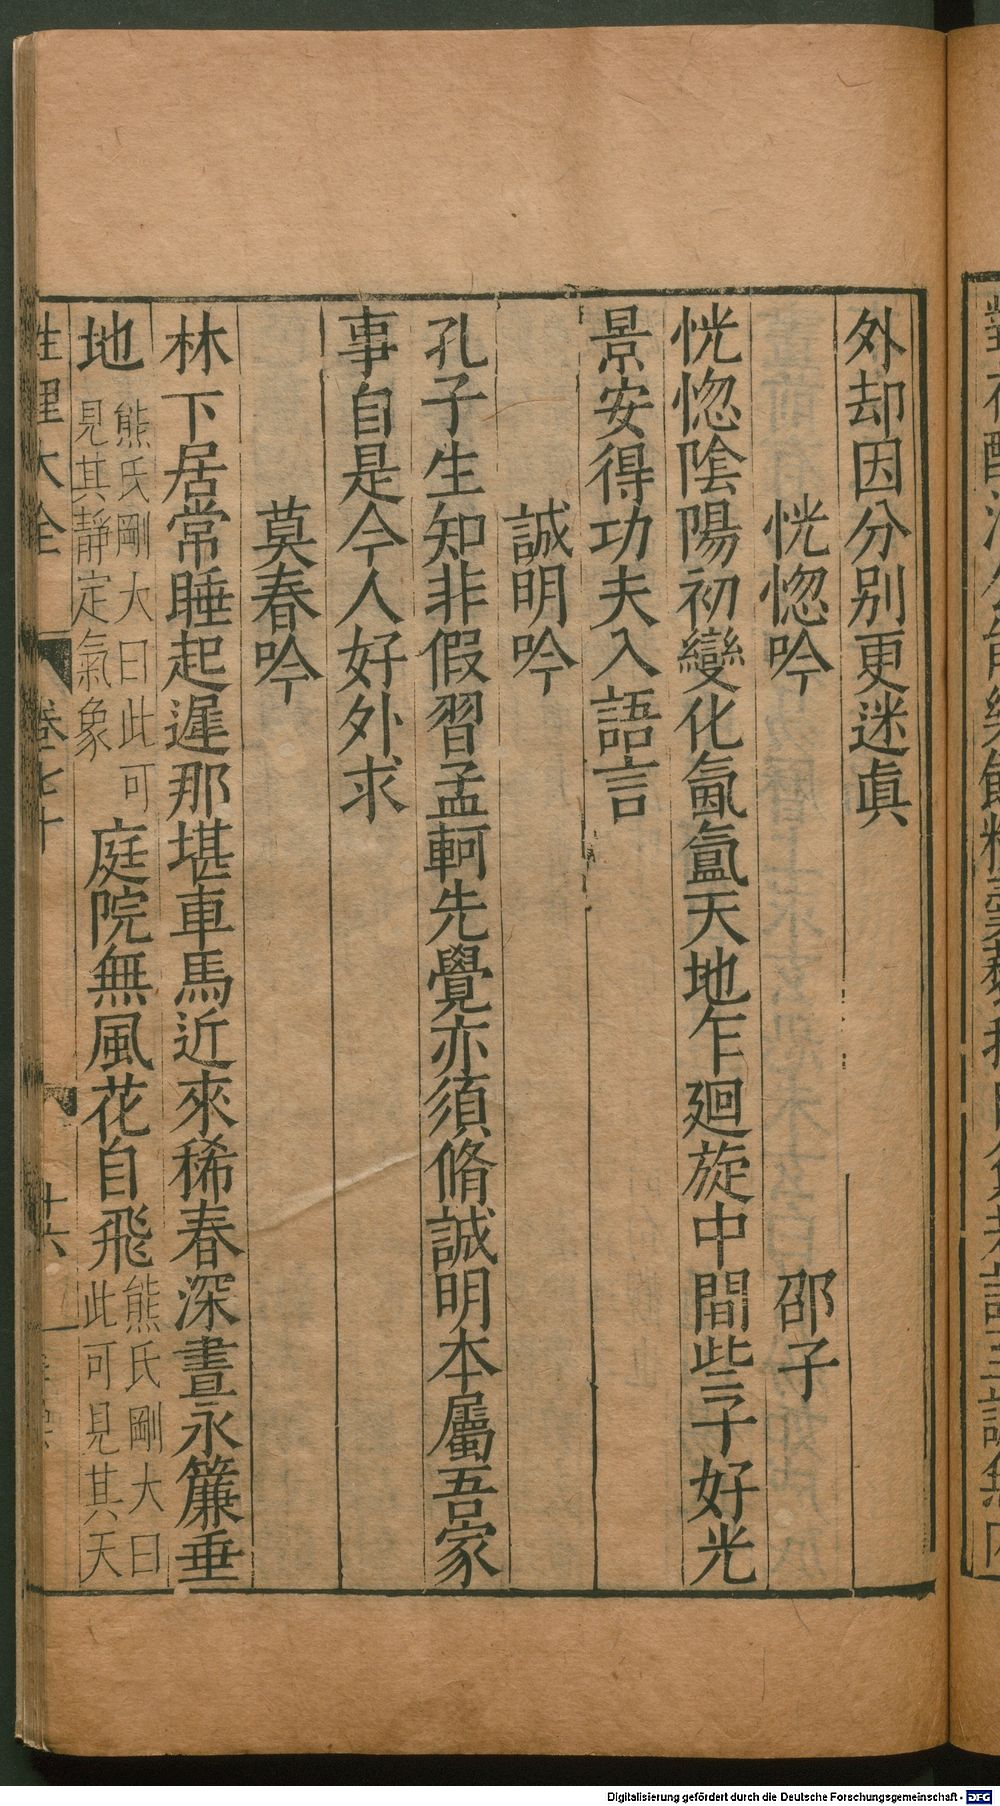 外却因分别更迷眞
恍惚吟　邵子
恍惚陰陽初變化氤氳天地乍廻旋中間些子好光
景安得功夫入語言
誠明吟
孔子生知非假習孟軻先覺亦須脩誠明本屬吾家
事自是今人好外求
莫春吟
林下居常睡起遲那堪車馬近來稀春深晝永簾垂
地
熊氏剛大曰此可
見其靜定氣象
庭院無風花自飛
熊氏剛大曰
此可見其天
性理大全　卷七十　十六
Digitalisierung gefördert durch die Deutsche Forschungsgemeinschaft - DFG